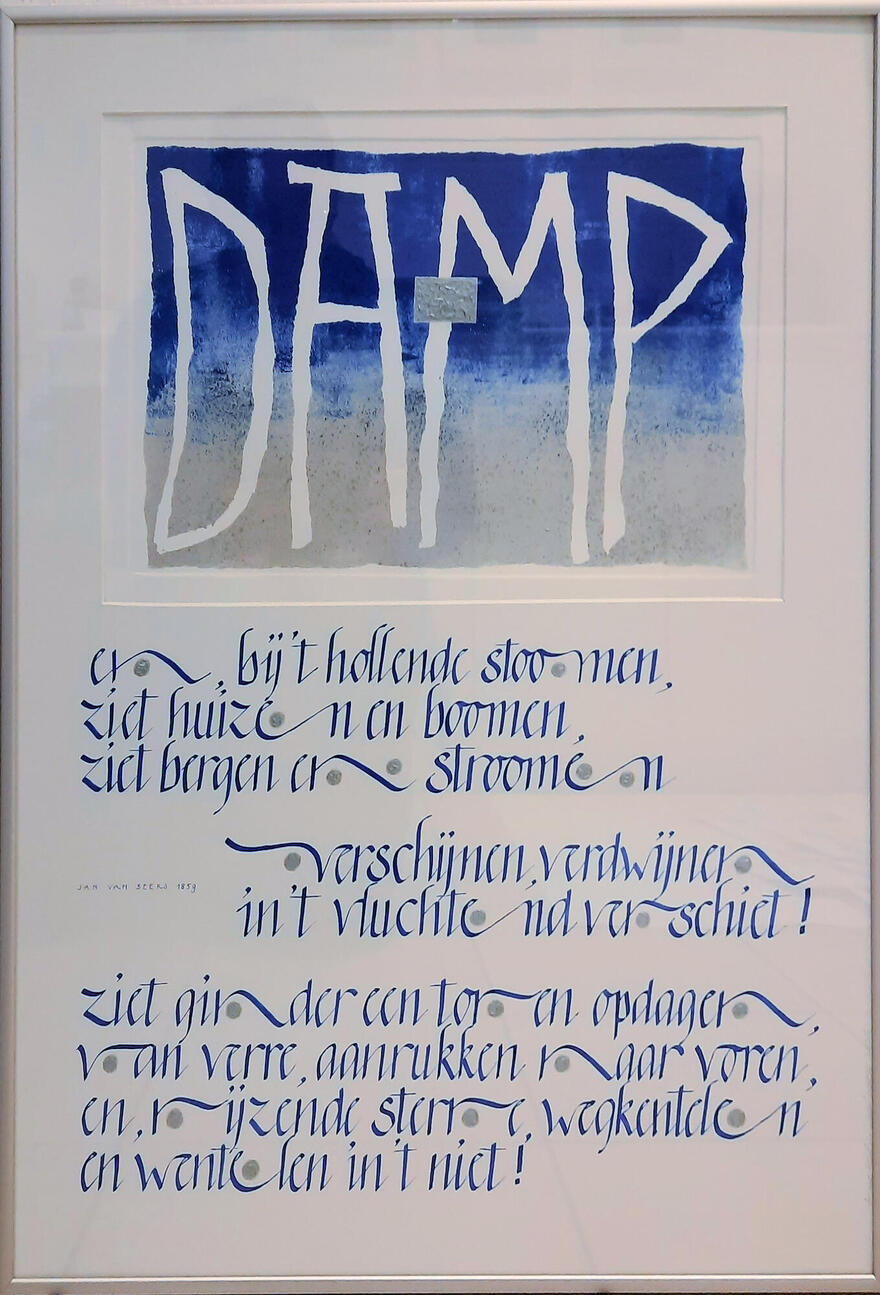 DAMP
en, bij 't hollende stoomen,
ziet huizen en boomen,
ziet bergen en stroomen
verschijnen, verdwijnen
JAN VAN BEERS 1859
in 't vluchtend verschiet!
ziet ginder een toren opdagen,
van verre, aanrukken naar voren,
en, rijzende sterre, wegkentelen
en wentelen in 't niet!